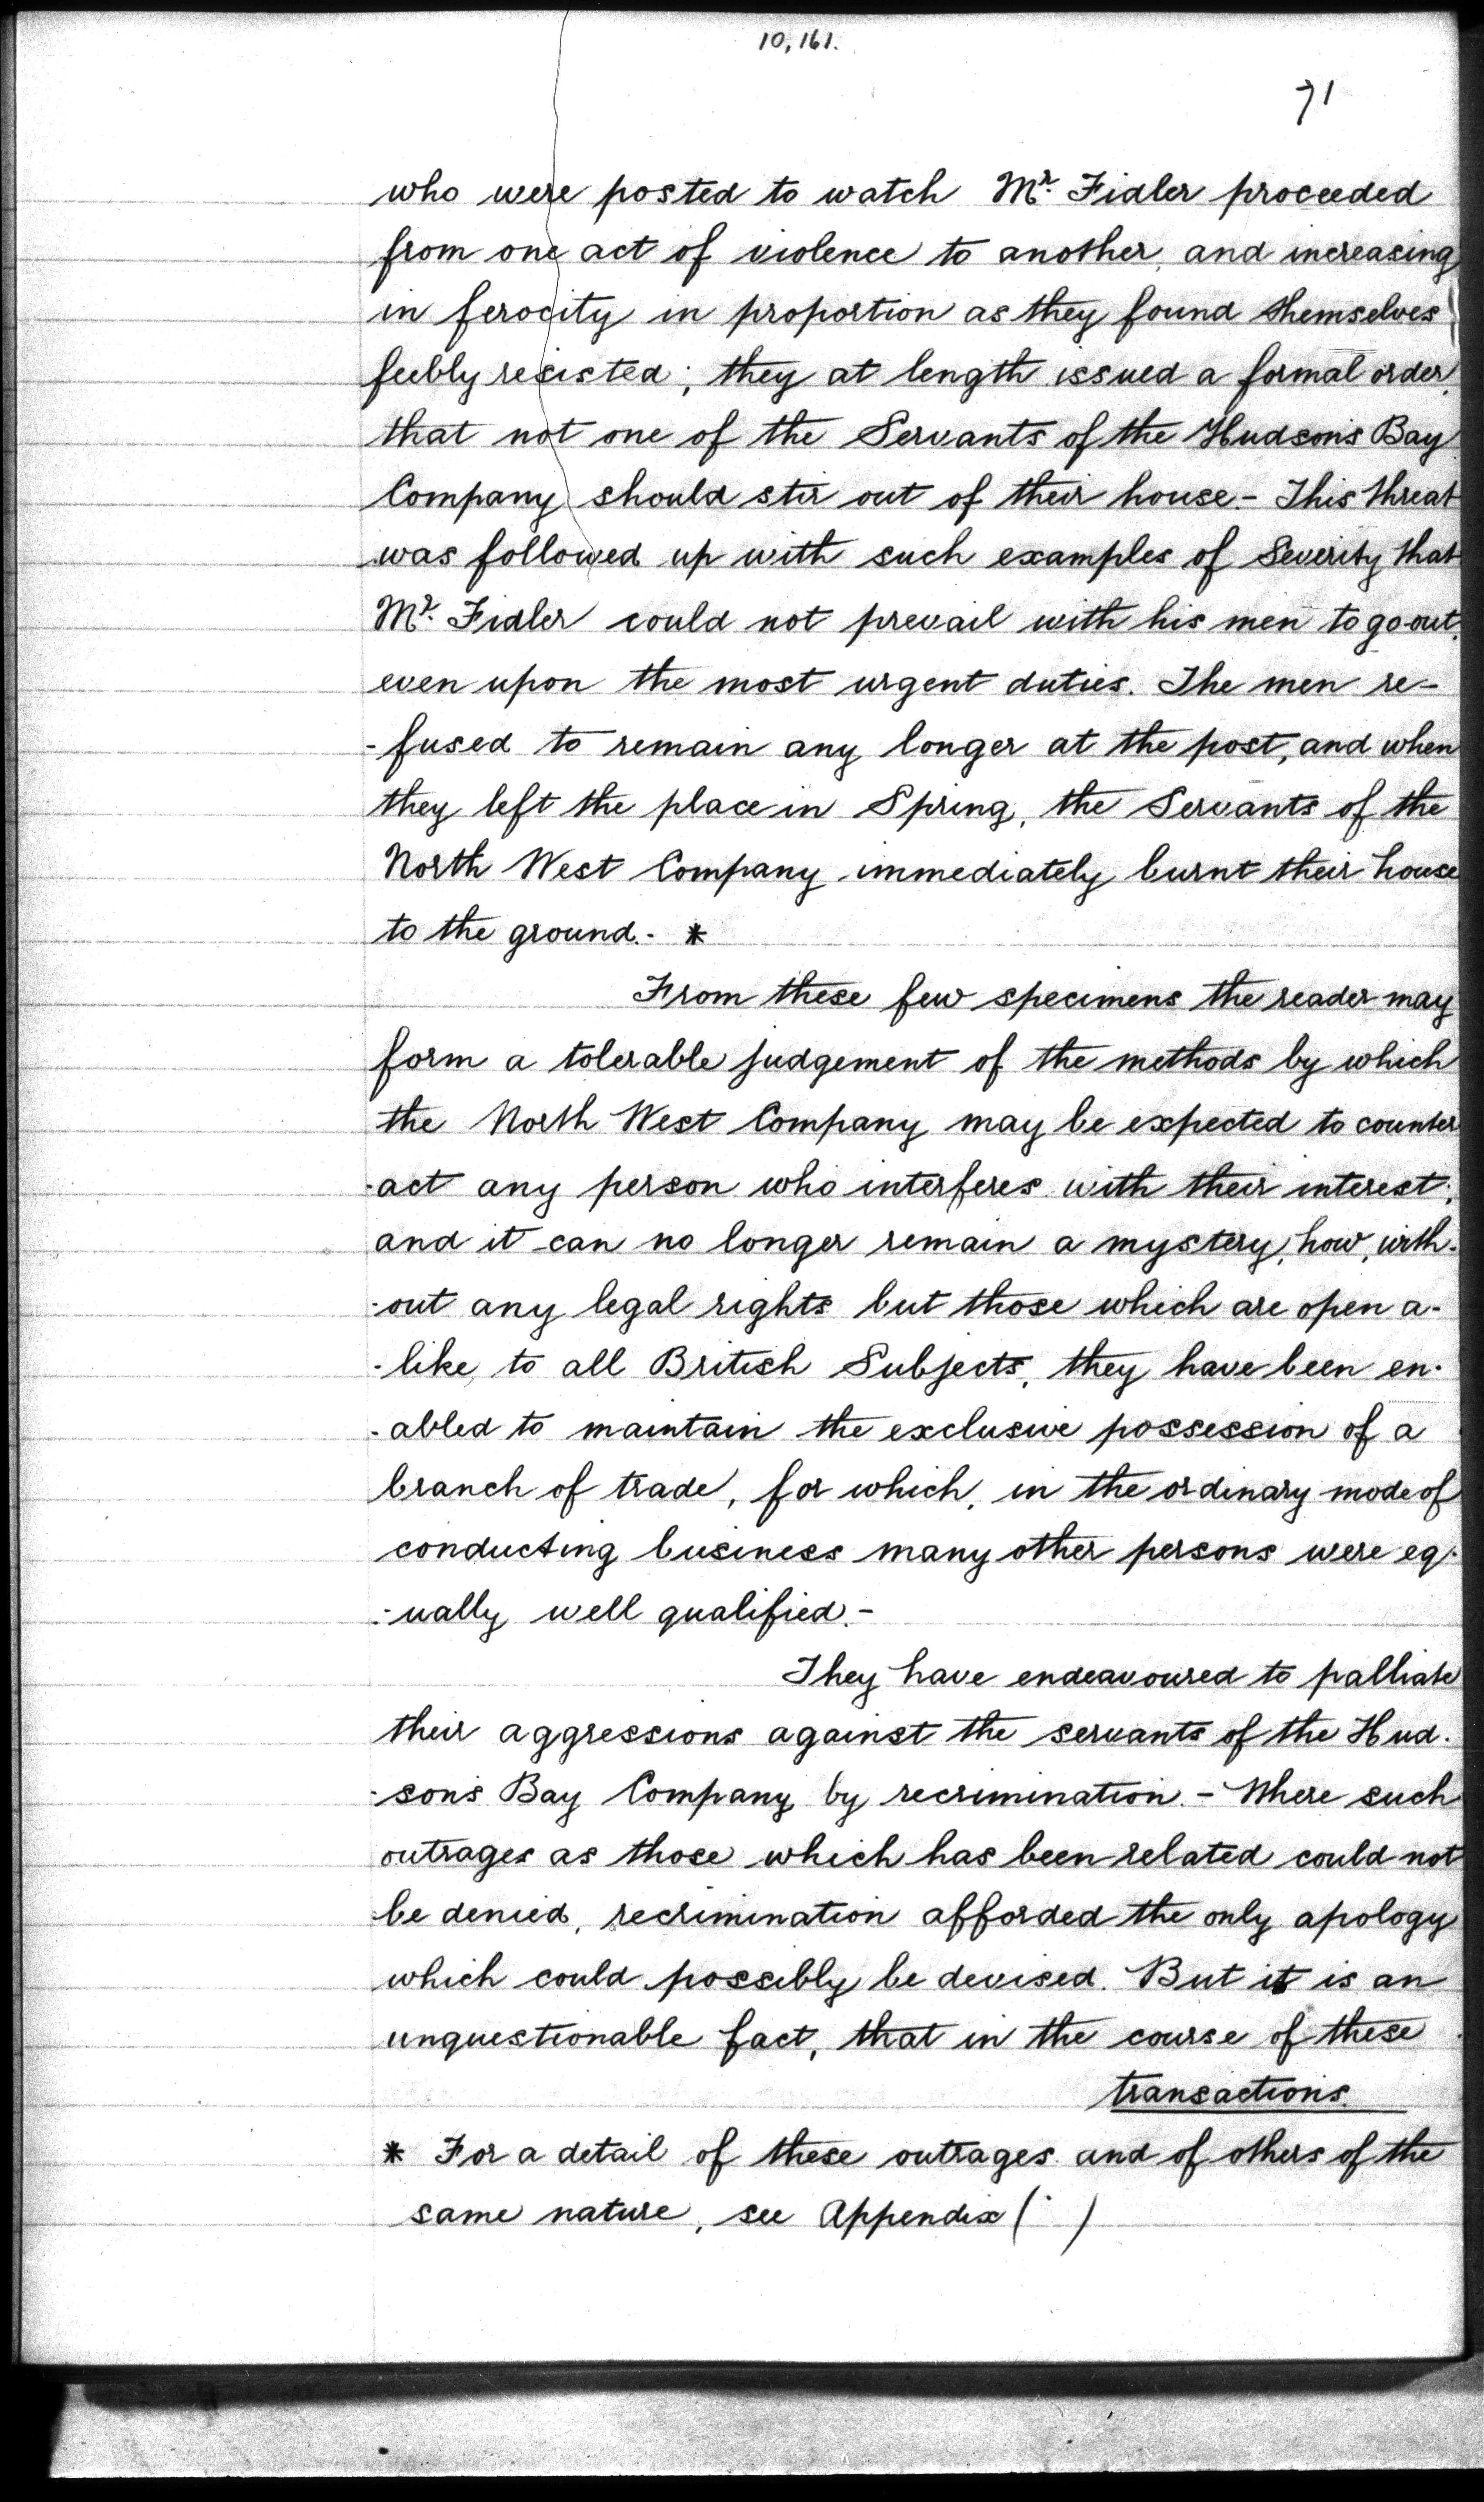 10,161.
71
who were posted to watch Mr. Fidler proceeded
from one act of violence to another, and increasing
in ferocity in proportion as they found themselves
feebly resisted; they at length issued a formal order,
that not one of the Servants of the Hudson's Bay
Company should stir out of their house.- This threat
was followed up with such examples of Severity that
Mr. Fidler could not prevail with his men to go out,
even upon the most urgent duties. The men re-
-fused to remain any longer at the post, and when
they left the place in Spring, the Servants of the
North West Company immediately burnt their house
to the ground.- *
From these few specimens the reader may
form a tolerable judgement of the methods by which
the North West Company may be expected to counter
-act any person who interferes with their interest;
and it can no longer remain a mystery, how, with-
-out any legal rights but those which are open a-
-like, to all British Subjects, they have been en-
-abled to maintain the exclusive possession of a
branch of trade, for which, in the ordinary mode of
conducting business many other persons were eq-
-ually well qualified.-
They have endeavoured to palliate
their aggressions against the servants of the Hud-
-son's Bay Company by recrimination.- Where such
outrages as those which has been related could not
be denied, recrimination afforded the only apology
which could possibly be devised. But it is an
unquestionable fact, that in the course of these
transactions.
* For a detail of these outrages and of others of the
same nature, see Appendix ( )